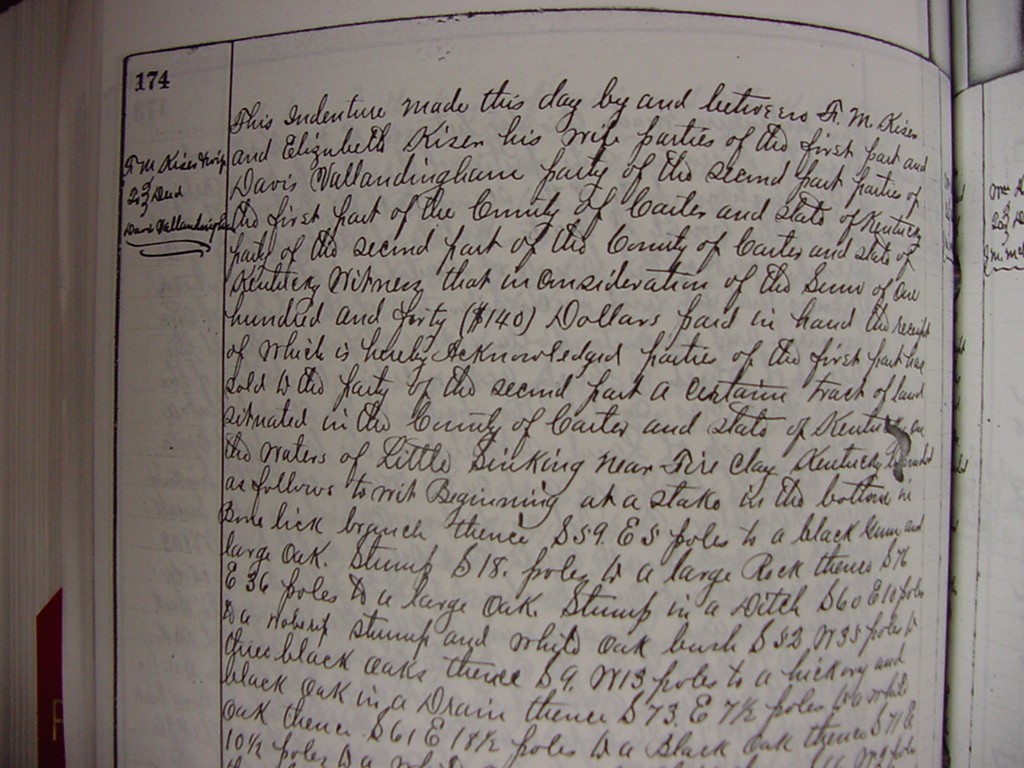 174
This Indenture made this day by and between F. M. Kiser
and Elizabeth Kiser his wife parties of the first part and
F. M. Kiser & wife
To } Deed
Davis Vallandingham
Davis Vallandingham party of the second part parties of
the first part of the County of Carter and state of Kentucky
party of the second part of the County of Carter and state of
Kentucky Witness that in consideration of the Sum of one
hundred and forty ($140) Dollars paid in hand the receipt
of which is hereby Acknowledged parties of the first part has
sold to the party of the second part a certain tract of land
situated in the County of Carter and state of Kentucky on
the waters of Little Sinking near Fire Clay Kentucky
as follows to wit Beginning at a stake in the bottom in
Bone lick branch thence S 59. E 5 poles to a black Gum and
large Oak. Stump S 18. poles to a large Rock thence S 76
E 36 poles to a large Oak. Stump in a Ditch S 60 E 10 poles
to a stump and white oak bush S 52 W 35 poles to
three black oaks thence S 9. W 13 poles to a hickory and
black Oak in a Drain thence S 73. E 7½ poles to a white
Oak thence S 61 E 18½ poles to a Black Oak thence S 71 E
10½ poles to a